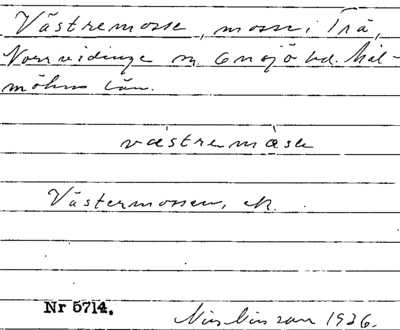 Västremosse, mosse i Trä,
Norrvidinge sn. Onsjö hd. Mal-
möhus län.
västremåse
Västermossen, ek.
Nr 5714.
1936.